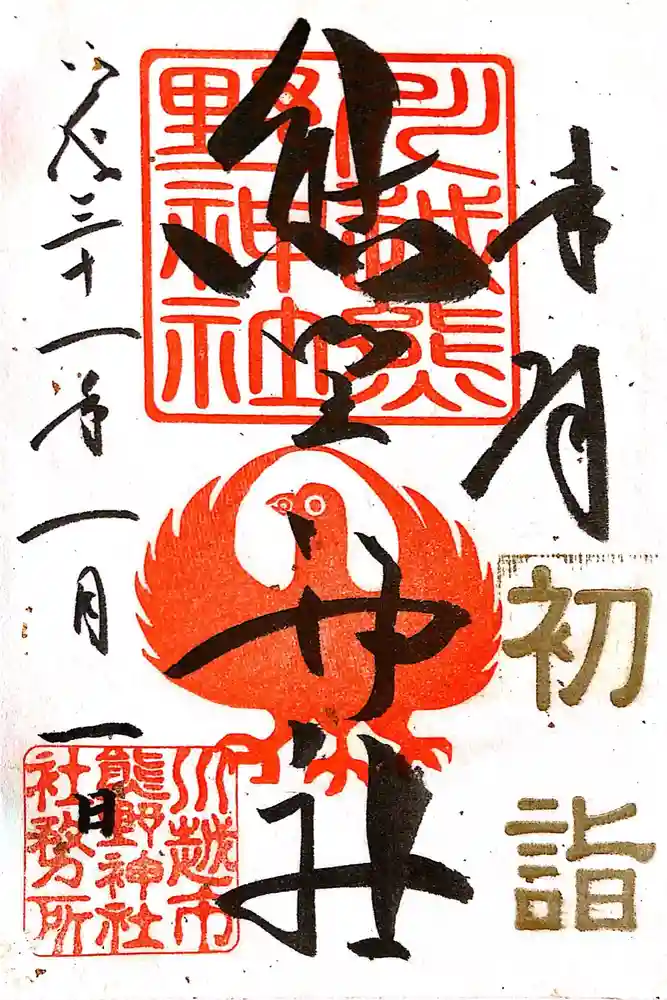 初詣
熊野神社
川越熊
野神社
平成三十一年一月一日
川越市
熊野神社
社務所